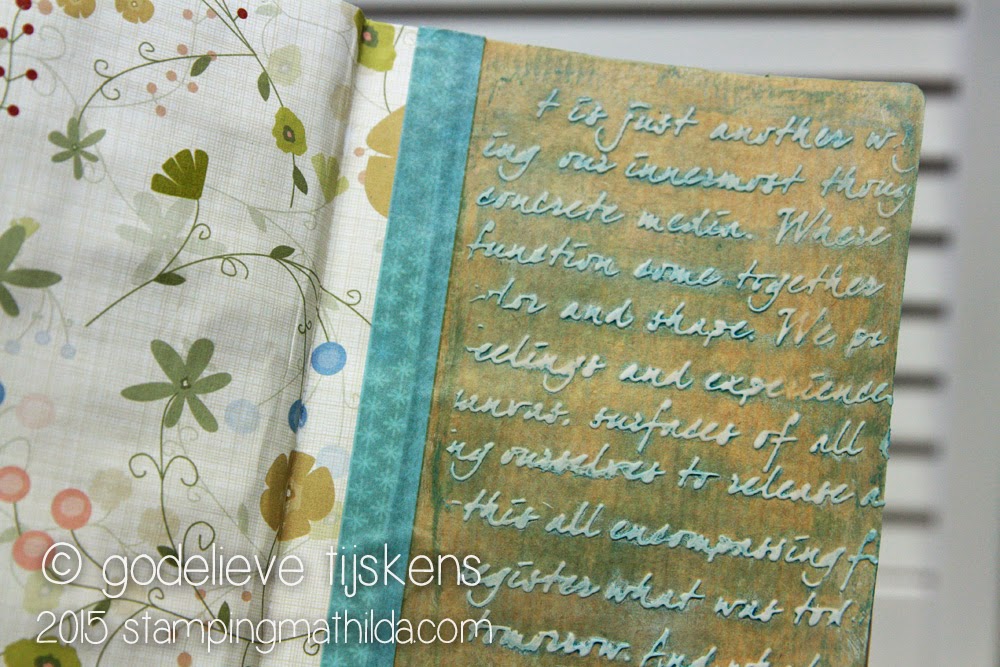 t is just another w
ing our innermost thoug
concrete media. Where
function come together
lor and shape. We po
eelings and experience
anvas, surfaces of all
ng ourselves to release a
this all encompassing f
egister what was tod
tomorrow. And
© godelieve tijskens
2015 stampingmathilda.com